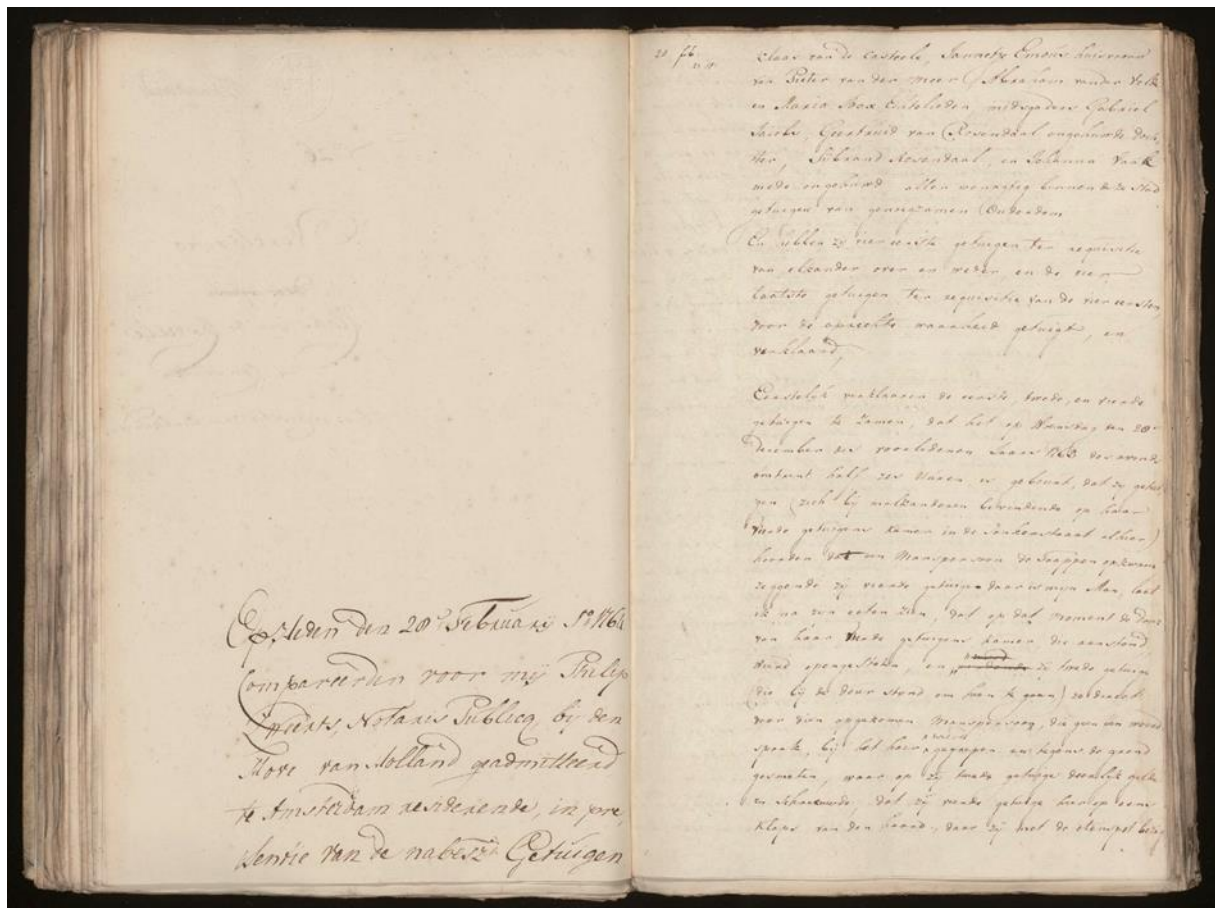 Op Heden den 20e Februarij Ao 1764
Compareerden voor mij Philip
Zweerts, Notaris Publicq, bij den
Hove van Holland geadmitteerd
te Amsterdam resideerende, in pre
sentie van de nabesz: Getuigen
Claas van de Casteele, Jannetje Emous huisvrouw
van Pieter van der Meer, Abraham van der Velk
en Maria Echtelieden mitsgaders Gabriel
Jacobs, Geertruid van Rosendaal ongehuwde Doch
ter, Sibrand Rosendaal, en Johanna
mede ongehuwd allen woonagtig binnen deze Stad
getuigen van genoegzamen Ouderdom
En hebben zij vier eerste getuigen ter requisitie
van elkander over en weder, en de vier
laatste getuigen ter requisitie van de vier eersten
voor de oprechte waarheid getuigt, en
verklaard,
Eerstelijk verklaaren de eerste, twede, en vierde
getuigen te zamen, dat het op den 20e
December des voorledenen Jaars 1763 des avonds
omtrent half zes Uuren is gebeurt, dat zij getui
gen (zich bij malkanderen bevindende op haar
vierde getuigens kamer in de Jonkerstraat alhier)
hoorden dat een Manspersoon de Trappen opkwam
zeggende zij vierde getuige daar is mijn Man, laat
ik na zijn eeten zien, dat op dat moment de Deur
van haar vierde getuigens kamer die aanstond
wierd opengestoten, en zij twede getuige
(die bij de deur stond om heen te gaan) zo direct
door dien opgekomen Manspersoon, die geen een woord
sprak, bij het hair wierd gegrepen en tegens de grond
gesmeten, waar op zij twede getuige
en schreeuwde, dat zij vierde getuige hier op eene
klaps van den haard, daar zij met de bezig